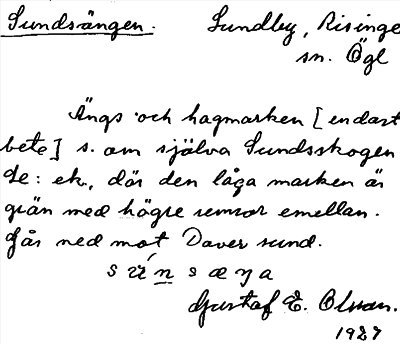 Sundsängen. Sundby, Risinge
sn. Ögl
Ängs och hagmarken [endast
bete] s. om själva Sundsskogen
de: ek, där den låga marken är
grän med högre remsor emellan.
Går ned mot Daver sund.
Gustaf E. Olsson.
1927